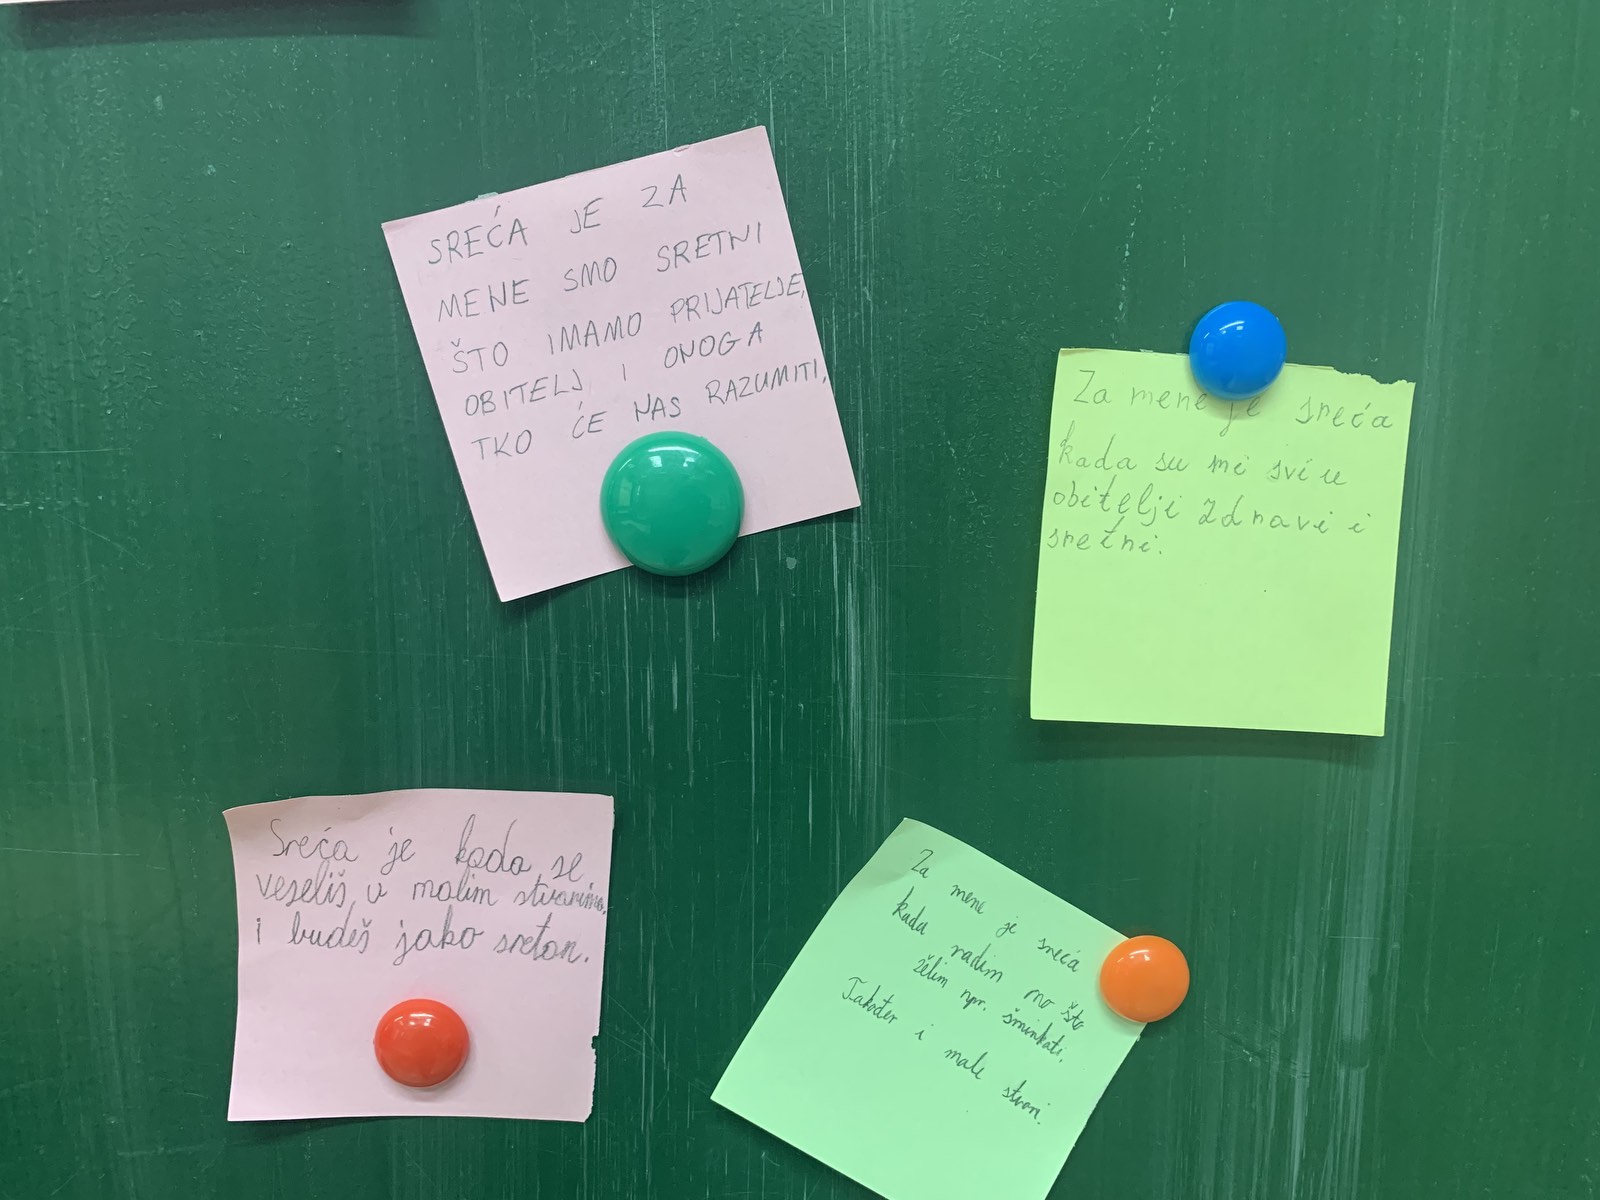 SREĆA JE ZA
MENE SMO SRETNI
ŠTO IMAMO PRIJATELJE,
OBITELJ I ONOGA
TKO ĆE NAS RAZUMITI,
Za mene je sreća
kada su mi svi u
obitelji zdravi i
sretni.
Sreća je kada se
veseliš u malim stvarima.
i budeš jako sretan.
Za mene je sreća
kada radim no što
želim npr. šminkati.
Također i male stvari.